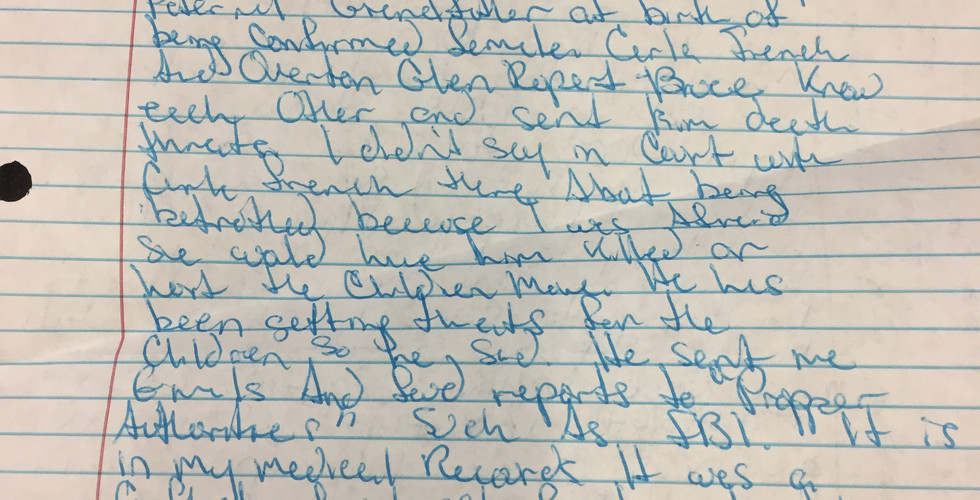 at birth of
being Confirmed Semiler Carla French
And Overton Glen Rupert Brace Knew
each Other and sent him death
threats I didn't say in Court with
French there About being
betrothed becuose I was Afraid
She would have him killed or
hert the Children More. He has
been getting threats for the
Children so he said. He sent me
Emails And reports to "Propper
Authorities" Such As FBI. It is
in my medical Records It was a